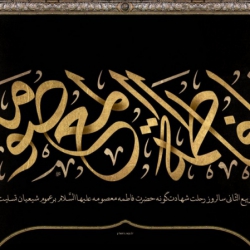 فاطمة المعصومة
ربیع الثانی سالروز رحلت شهادت‌گونه حضرت فاطمه معصومه علیها السّلام بر عموم شیعیان تسلیت